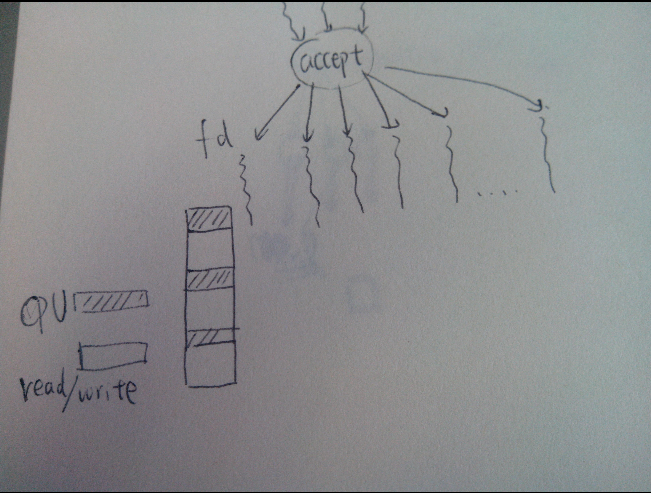 accept
fd
....
CPU
read/write